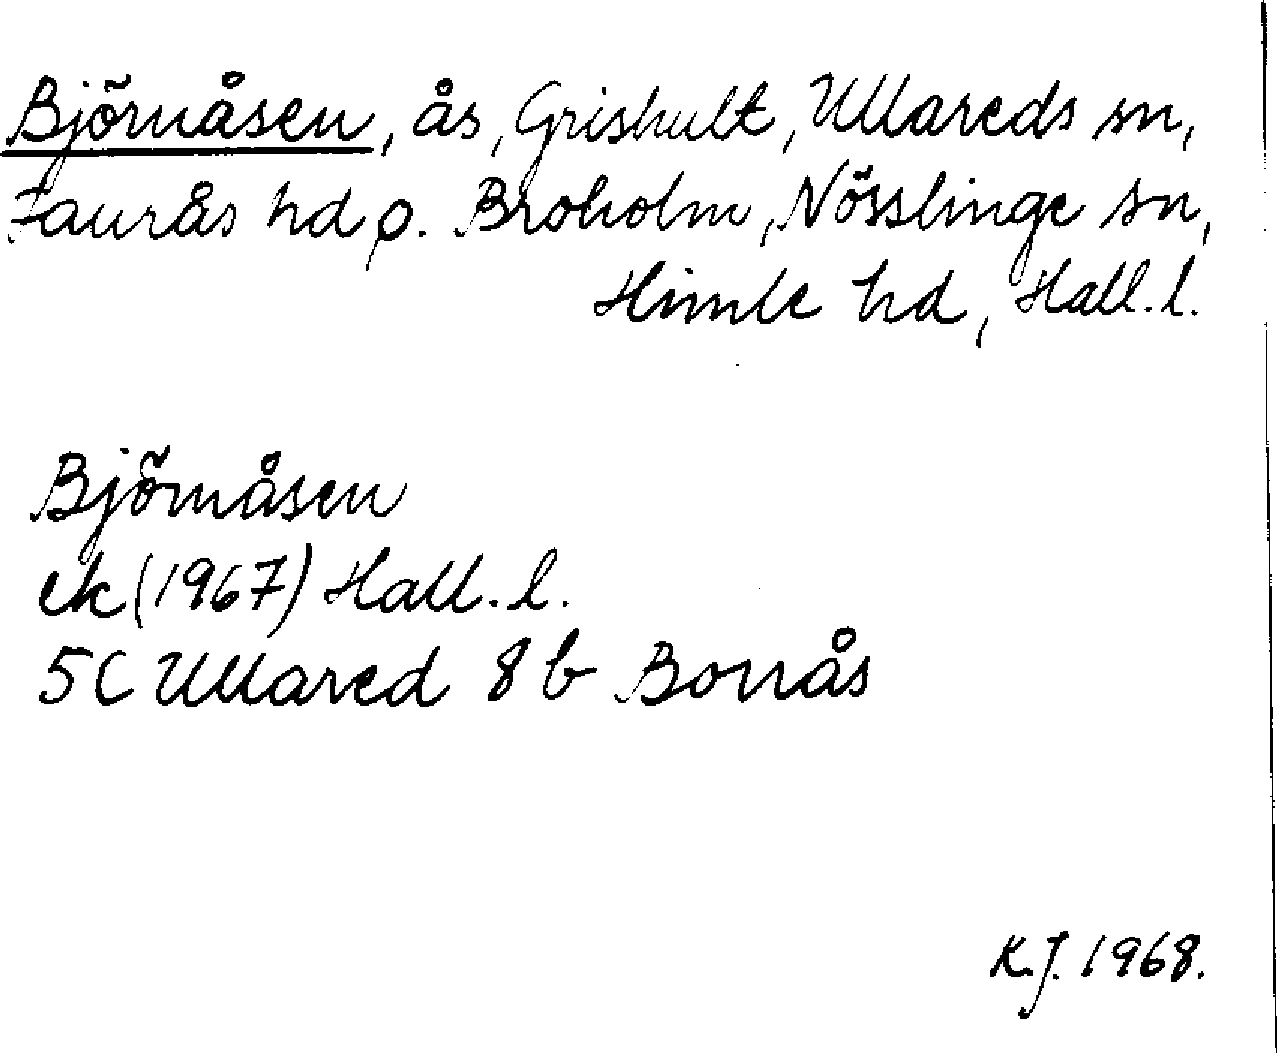 Björnåsen, ås, Grishult, Ullareds sn,
Faurås hd o. Broholm, Nösslinge sn,
Himle hd, Hall. l.
Björnåsen
ek (1967) Hall. l.
5C Ullared 8 b Bonås
K.J. 1968.